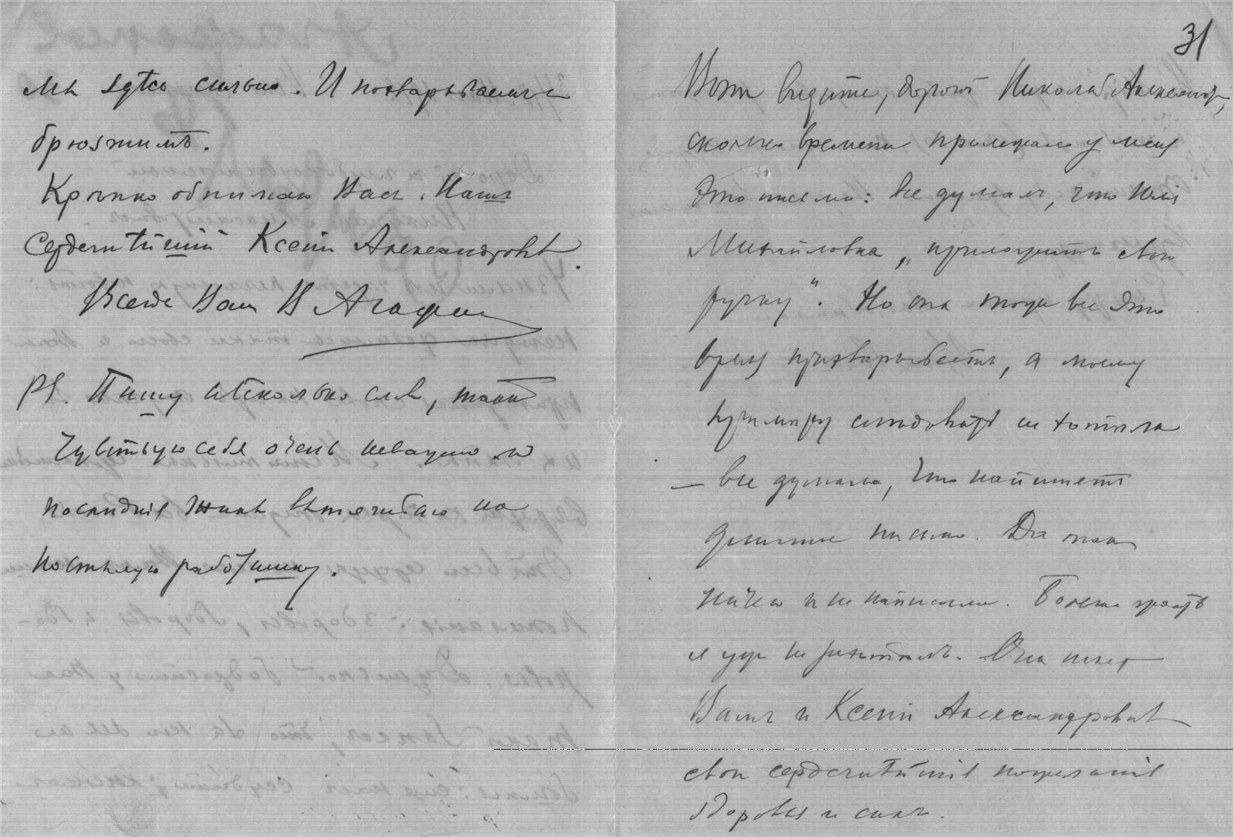 мы здѣсь сильно. И
брюзжимъ.
Крѣпко обнимаю Васъ. Нашъ
сердечнѣйшій Ксеніи Александровнѣ.
Всегда Ваш В
PS. Пишу нѣсколько слов, такъ
чувствую себя очень неважно и
послѣдніе жилы вытягиваю на
постылую работишку.
31
Вот видите, дорогой Николай Александр,
сколько времени пролежало у меня
это письмо: все думал, что
Михайловна „приложитъ свою
ручку“. Но она тоже все это
время прихварываетъ, а моему
примѣру слѣдовать не хотѣла
— все думала, что напишетъ
длинное письмо. Да так
ничего и не написала. Больше ждать
я уж не рѣшился. Она шлет
Вамъ и Ксеніи Александровнѣ
свои сердечнѣйшія пожеланія
здоровья и силъ.